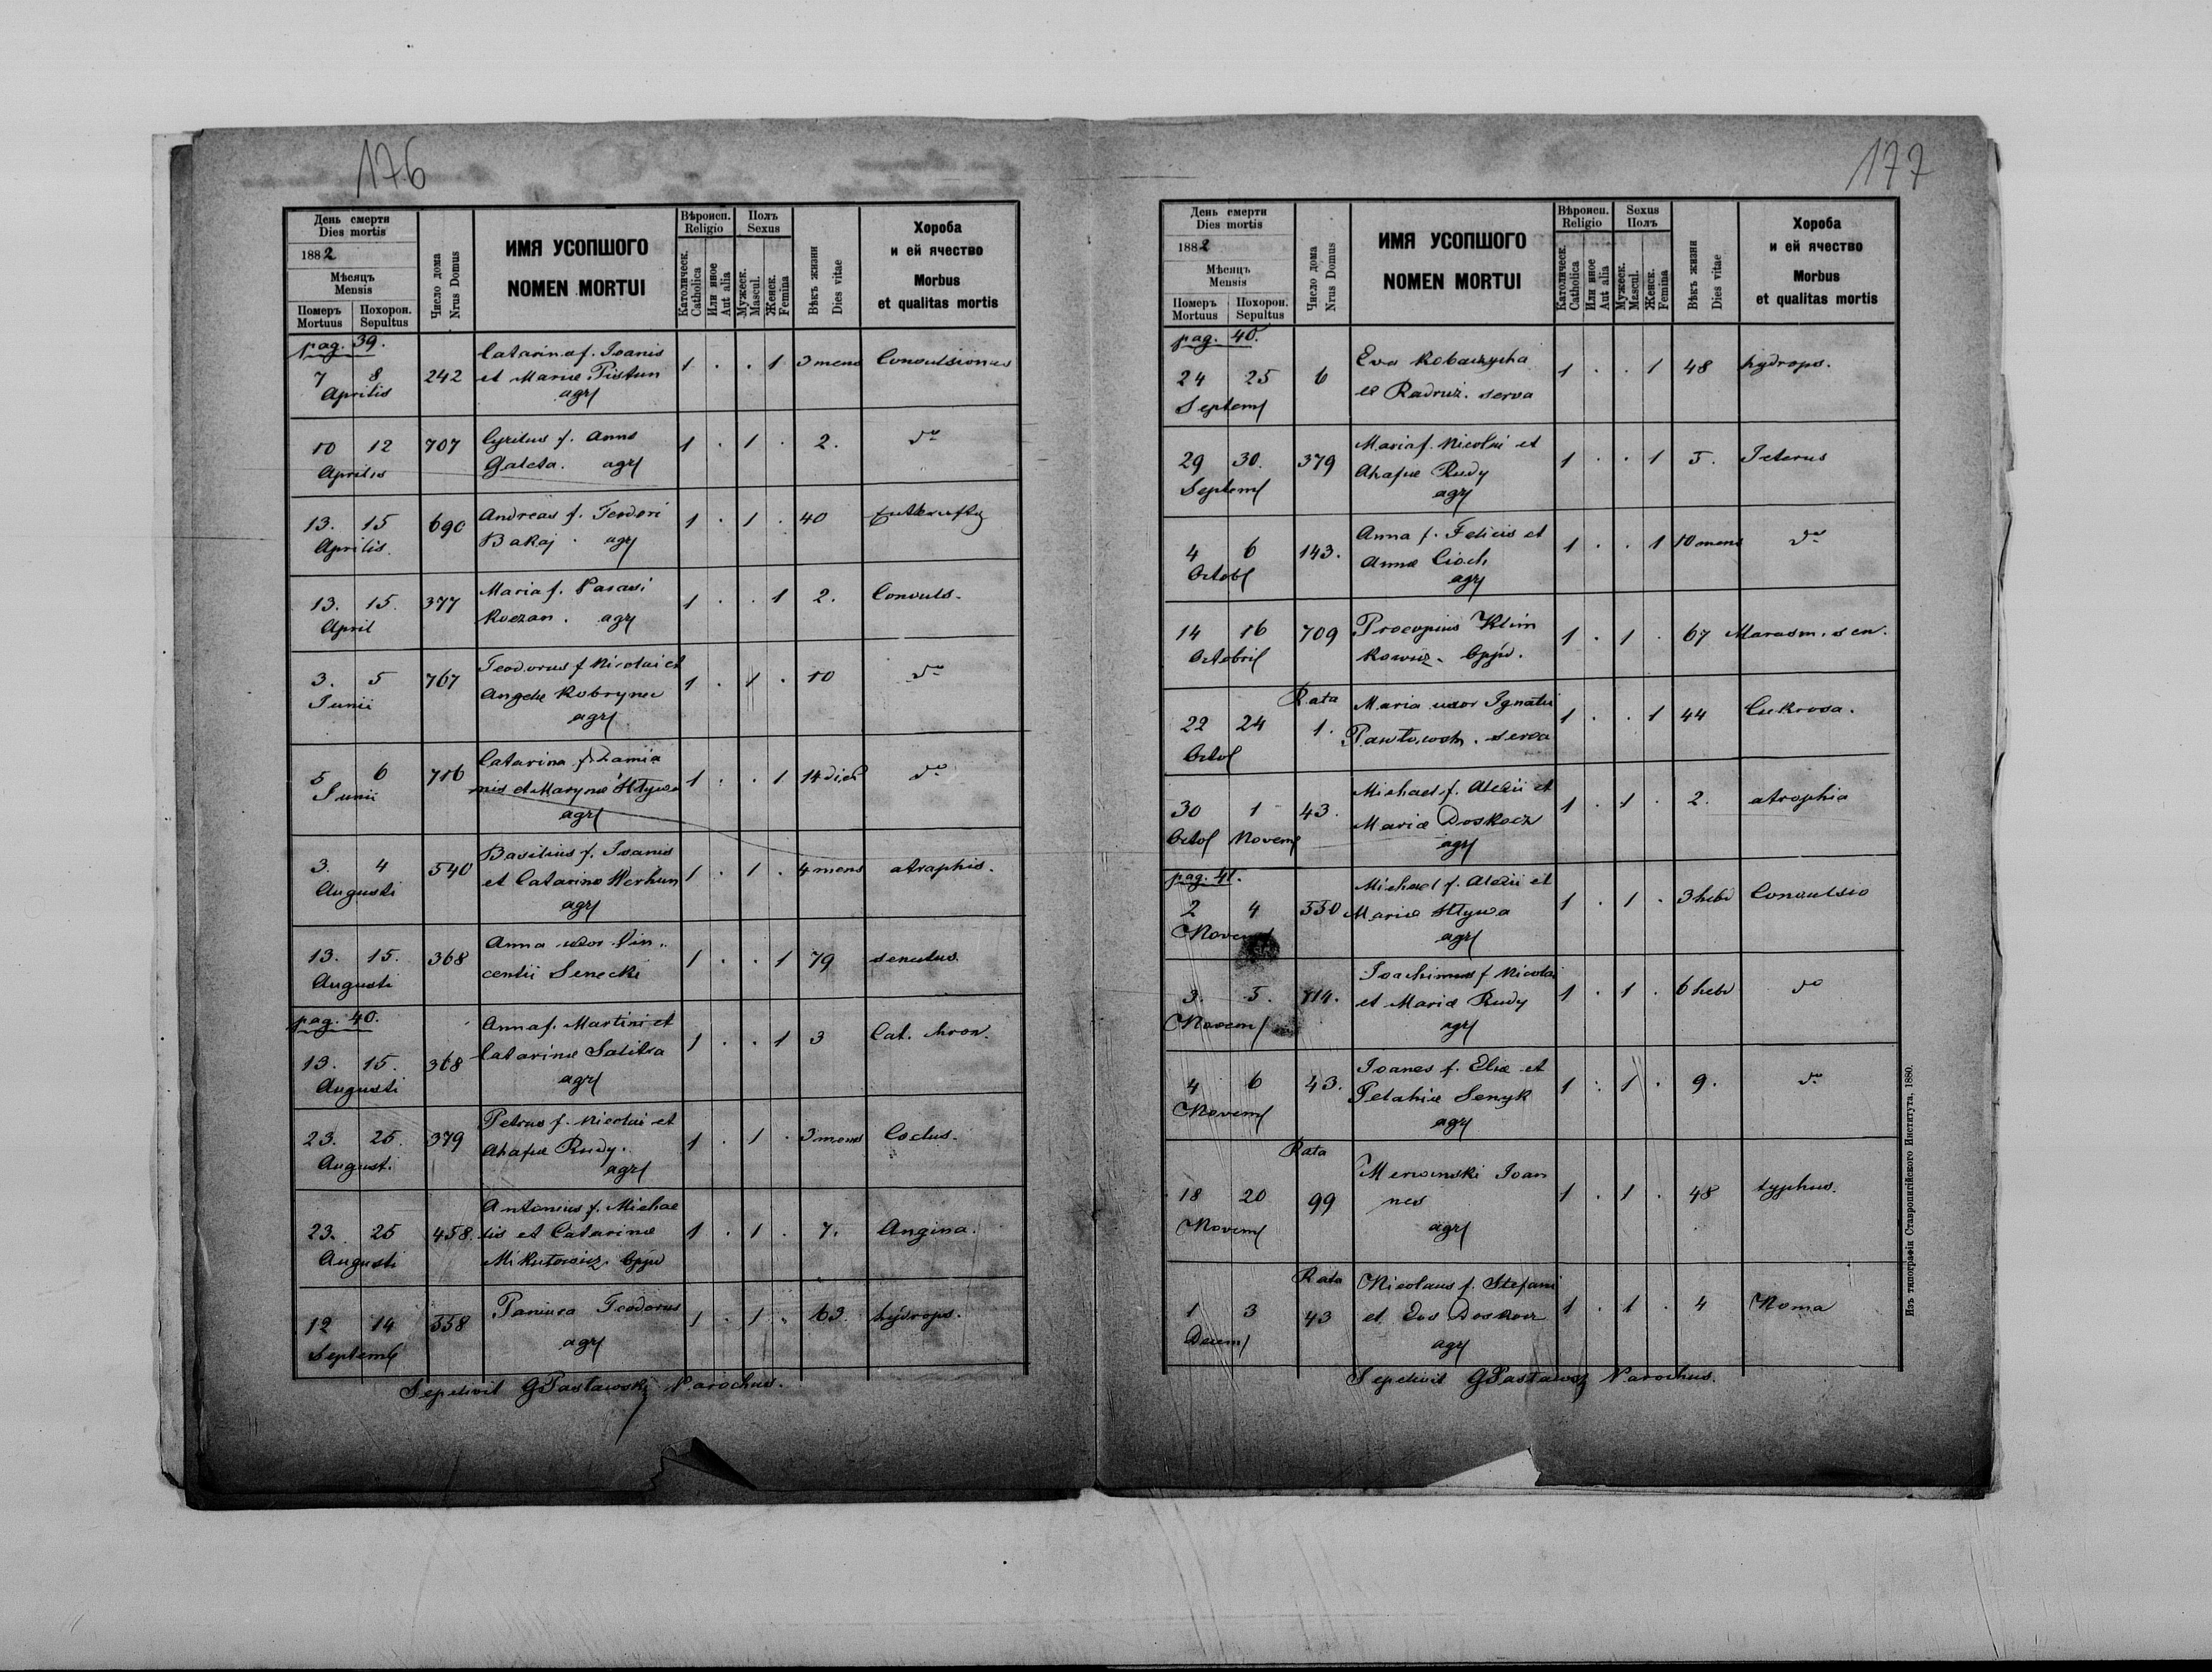 176
День смерти
Dies mortis
1882
Мѣсяцъ
Mensis
Померъ
Mortuus
Похорон.
Sepultus
Число дома
Nrus Domus
ИМЯ УСОПШОГО
NOMEN MORTUI
Вѣроисп.
Religio
Католическ.
Catholica
Или иное
Aut alia
Полъ
Sexus
Мужеск.
Mascul.
Женск.
Femina
Вѣкъ жизни
Dies vitae
Хороба
и ей ячество
Morbus
et qualitas mortis
pag. 39.
7 8 242 Catarina f. Ioanis
et Mariæ Pistun 1 . . 1 3 mens Convulsiones
Aprilis agr
10 12 707 Cyrilus f. Anna 1 . 1 . 2. do
Galeta. agr
Aprilis
13. 15 690 Andreas f. Teodori 1 . 1 . 40
Bakaj . agr
Aprilis.
13. 15. 377 Maria f. Parasi 1 . . 1 2. Convuls.
Koczan . agr
April
3. 5 767 Teodorus f Nicolai et
Angelæ Kobryner 1 . 1 . 10 do
Junii agr
5 6 716 Catarina f. Damia
nis et Marynæ Hływa 1 . . 1 14 dies do
Junii agr
3. 4 540 Basilius f. Ioanis
et Catarina Werhun 1 . 1 . 4 mens atraphis.
Augusti agr
13. 15. 368 Anna uxor Vin„
centii Senecki 1 . . 1 79 senectus.
Augusti
pag. 40.
13. 15. 368 Anna f. Martini et
Catarinæ Salitra 1 . . 1 3 Cat. chron.
Augusti agr
23. 25. 379 Petrus f. Nicolai et
Ahafiæ Rudy. 1 . 1 . 3 mens
August. agr
23. 25 458. Antonius f. Michae
lis et Catarinæ 1 . 1 . 7. Angina.
Augusti
12 14 558 Teodorus 1 . 1 . 63. hydrops.
Septemb agr
Sepelivit GPasławski Parochus.
177
День смерти
Dies mortis
1882
Мѣсяцъ
Mensis
Померъ
Mortuus
Похорон.
Sepultus
Число дома
Nrus Domus
ИМЯ УСОПШОГО
NOMEN MORTUI
Вѣроисп.
Religio
Католическ.
Catholica
Или иное
Aut alia
Sexus
Полъ
Мужеск.
Mascul.
Женск.
Femina
Вѣкъ жизни
Dies vitae
Хороба
и ей ячество
Morbus
et qualitas mortis
pag. 40.
24 25 6 Eva
Radruż. serva 1 . . 1 48 hydrops.
Septem
29 30. 379 Maria f. Nicolai et
Ahafiæ Rudy 1 . . 1 5. Icterus
Septem agr
4 6 143. Anna f. Felicis et
Annæ Cioch 1 . . 1 10 mens do
Octob agr
14 16 709 Procopius Klim
kowicz. 1 . 1 . 67 Marasm. sen.
Octobri
Rata
22 24 1. Maria uxor Ignatii
serva 1 . . 1 44
Octo
30 1 43. Michael f. Alexii et
Mariæ Doskocz 1 . 1 . 2. atrophia
Octo Novem agr
pag. 41.
2 4 550 Michael f. Alexii et
Mariæ Hływa 1 . 1 . 3 hebd Convulsio
Novem agr
3. 5. 714. Joachimus f Nicolai
et Mariæ Rudy 1 . 1 . 6 hebd do
Novem agr
4 6 43. Ioanes f. Eliæ et
Pelahiæ Senyk 1 . 1 . 9. do
Novem agr
Rata
18 20 99 Ioan
nes 1 . 1 . 48 typhus.
Novem agr
Rata
1 3 43 Nicolaus f. Stefani
et Eva Doskocz 1 . 1 . 4 Noma
Decem agr
Sepelivit GPasławski Parochus.
Изъ типографіи Ставропигійского Института, 1880.